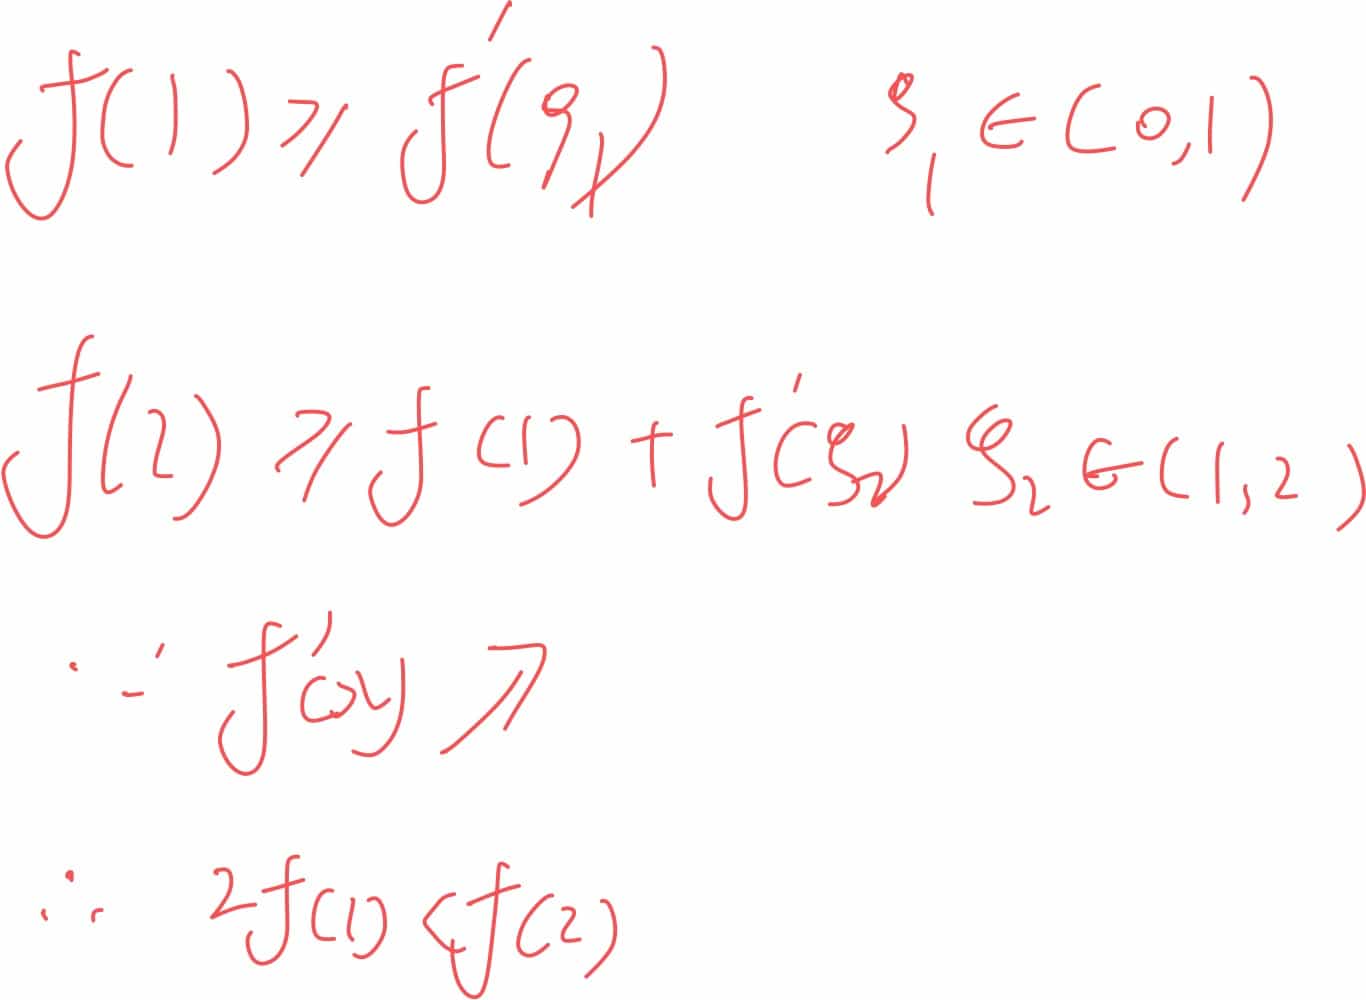 f(1) ⩾ f'(ξ₁) ξ₁ ∈ (0,1)
f(2) ⩾ f(1) + f'(ξ₂) ξ₂ ∈ (1,2)
∵ f'(x) ↗
∴ 2f(1) < f(2)